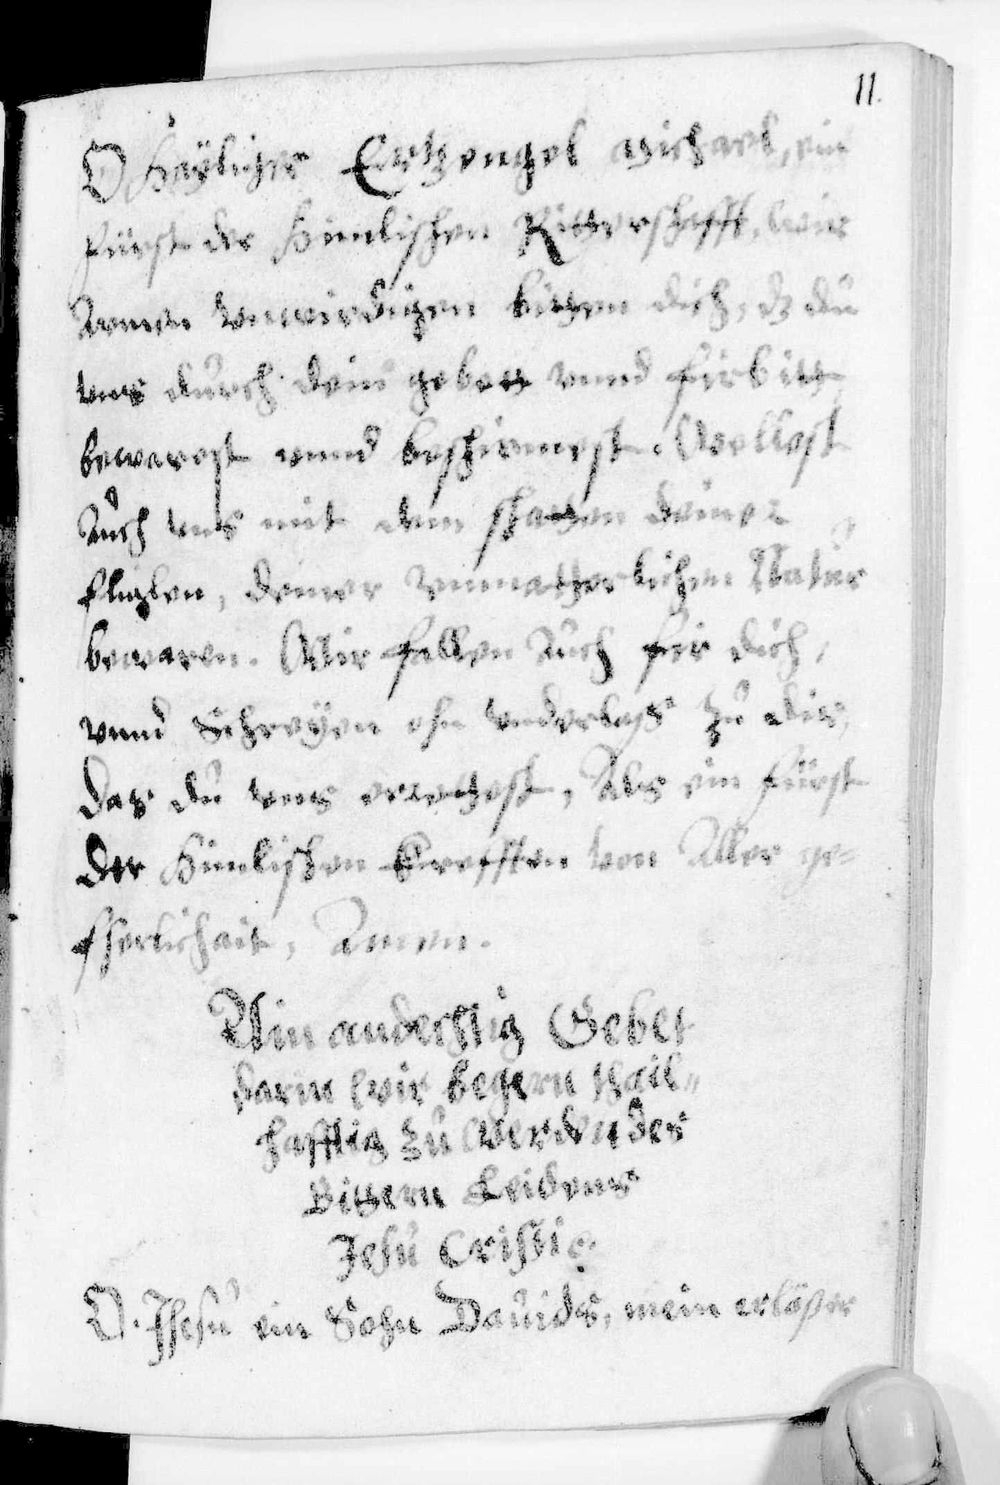 11.
O Haÿliger Ertzengel Michael, ein
Fürst der Himlischen Ritterschafft, wir
Armen vnwirdigen bitten dich, dz du
vns durch dein gebett vnnd fürbitt
bewarest vnnd beschirmest. Wellest
Auch vns mit dem schatten deiner
fliglen, deiner vnmatherlichen Natur
bewaren. Wir fallen Auch für dich,
vnnd Schreÿen ohn vnderlass zu dir,
Das du vns errettest, Als ein Fürst
Der Himlischen Krefften von Aller ge=
fherlichait, Amen.
Ain andechtig Gebet
darin wir begern thail=
hafftig zu werden des
Bittern Leidens
Jesu Cristi.
O. Jhesu ein Sohn Dauids, mein erlößer